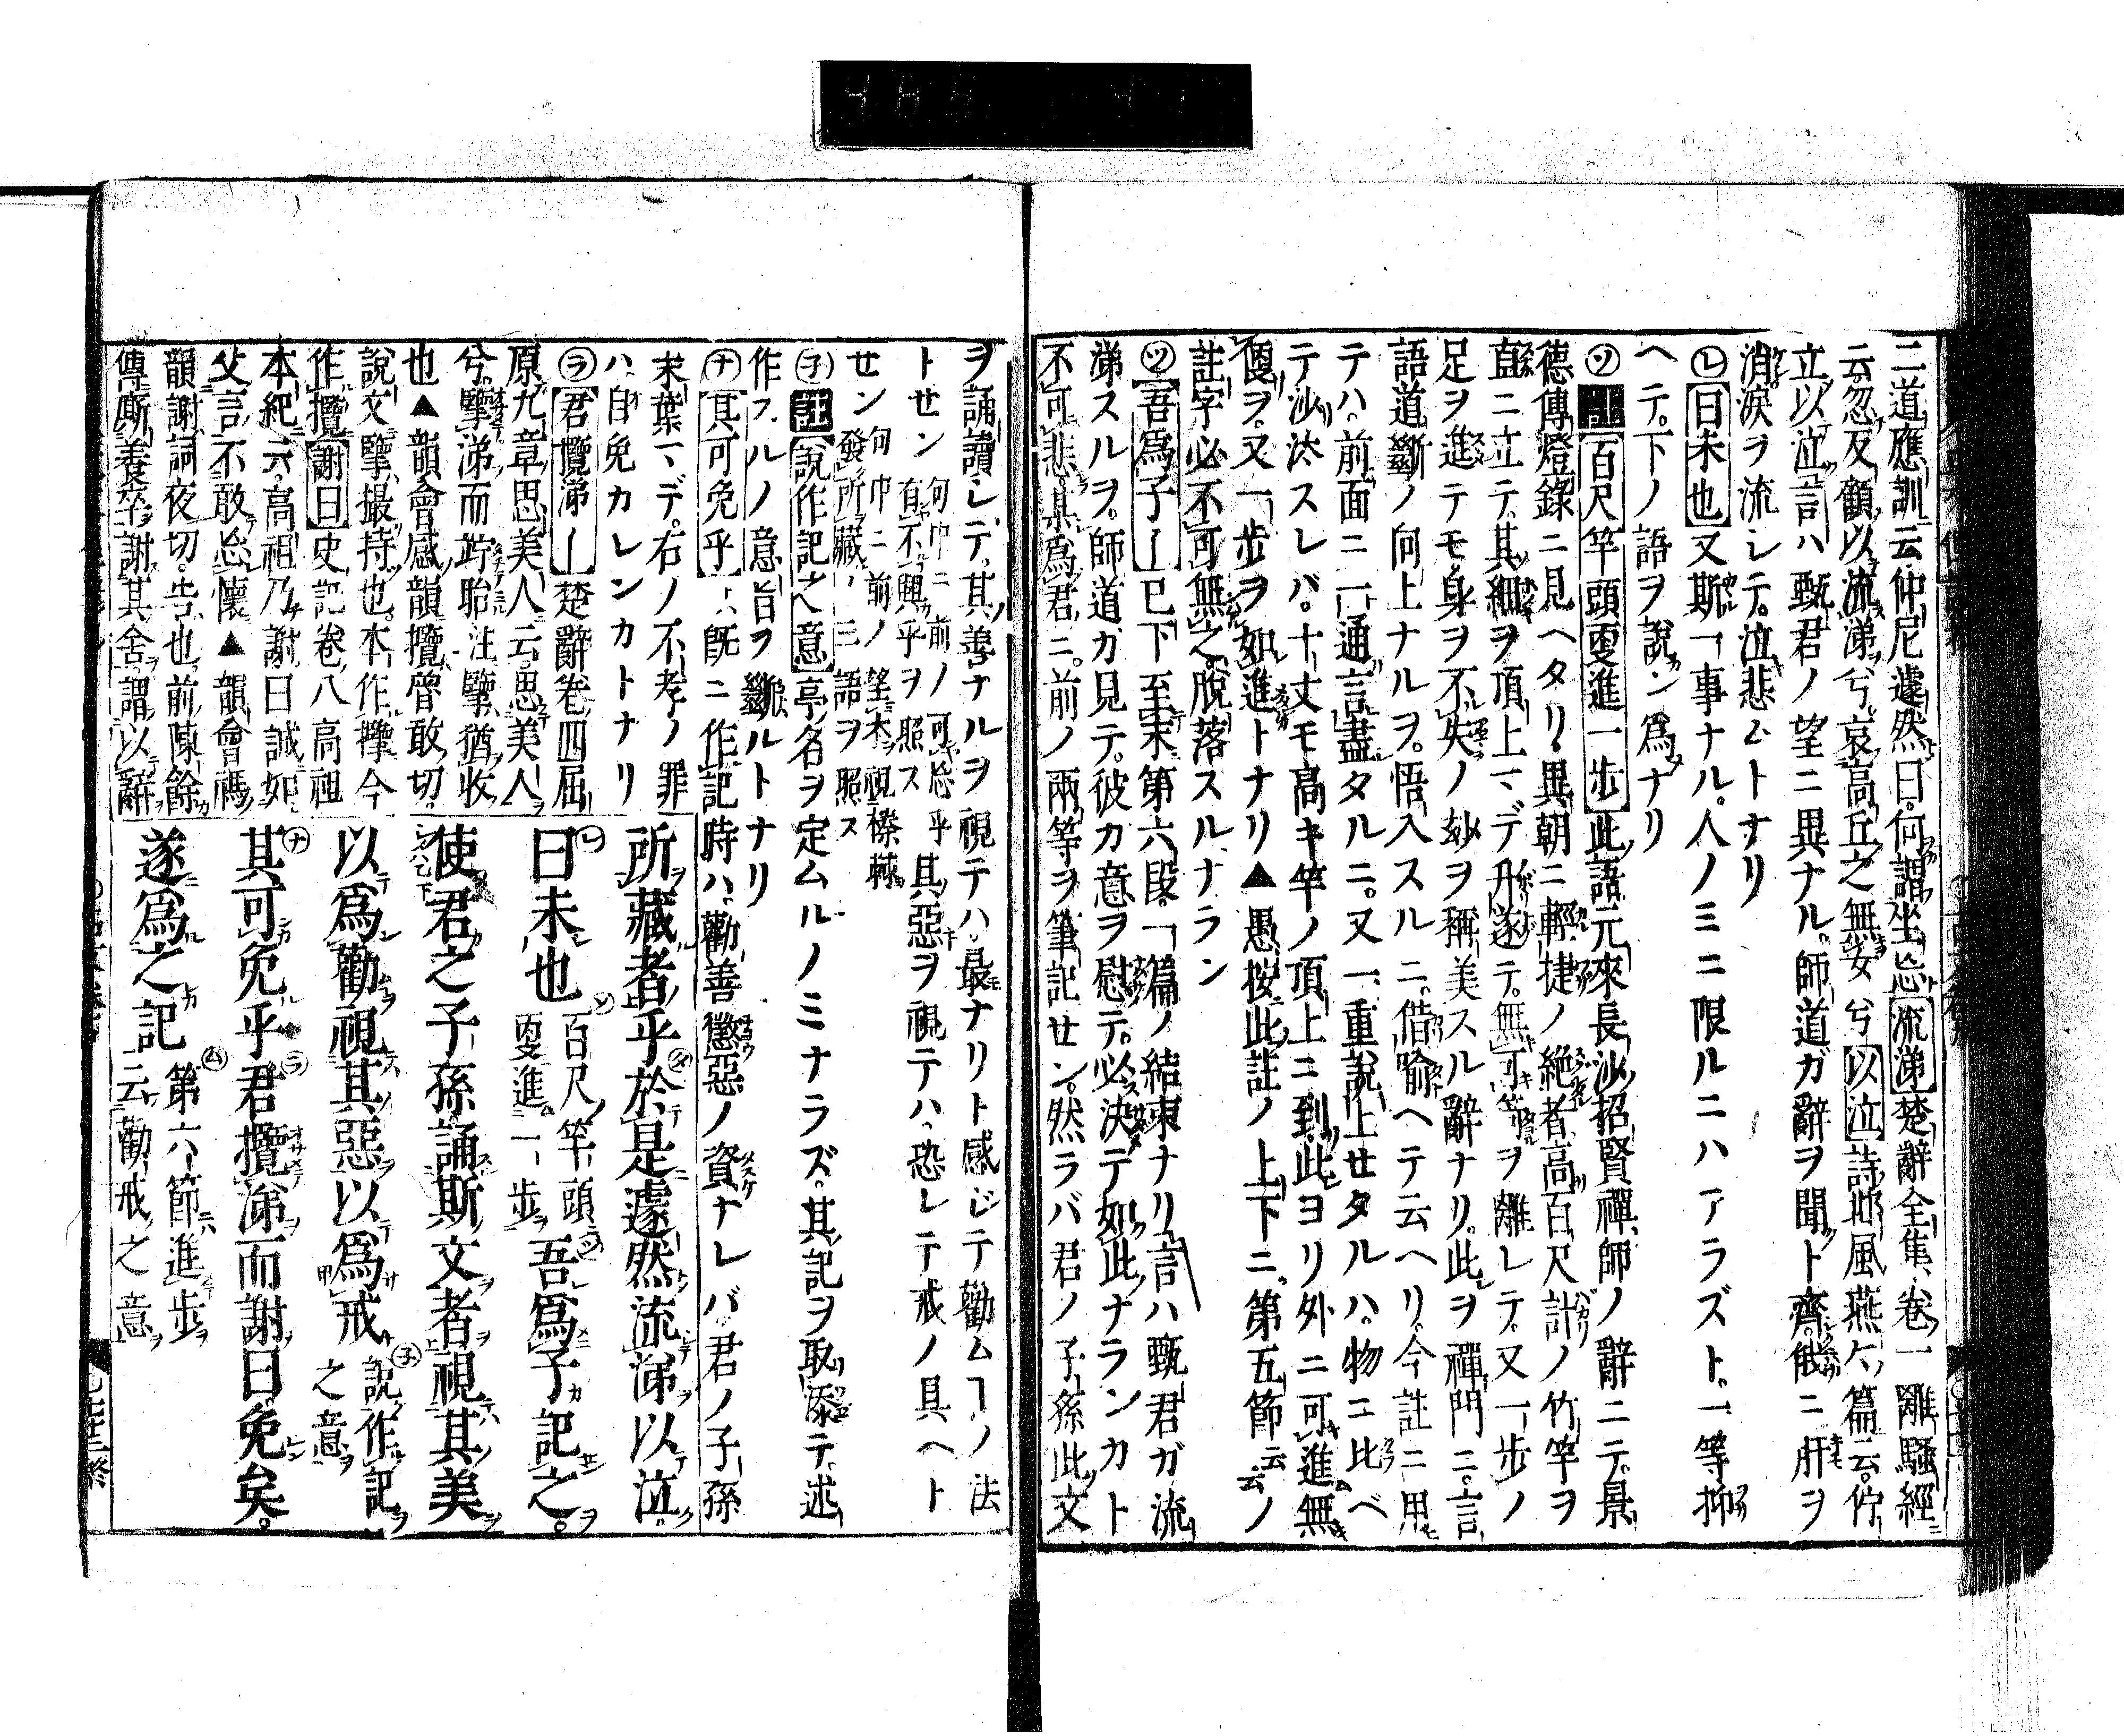 二道應訓云仲尼遽然曰何謂坐忘流涕楚辭全集卷一離騷經
云忽反顧以流涕兮哀高丘之無女兮以泣詩邶風燕々篇云佇
立以泣言ハ甄君ノ望ニ異ナル師道ガ辭ヲ聞ト齊俄ニ肝ヲ
消涙ヲ流レテ泣悲ムトナリ
レ曰未也又斯一事ナル人ノミニ限ルニハアラズト一等抑
ヘテ下ノ語ヲ說ン爲ナリ
ソ註百尺竿頭更進一步此語元來長沙招賢禪師ノ辭ニテ景
德傳燈錄ニ見ヘタリ異朝ニ輕捷ノ絶者高百尺計ノ竹竿ヲ
直ニ立テ其細ヲ頂上マデ升遂テ無可等ヲ離レテ又一步ノ
足ヲ進テモ身ヲ不失ノ玅ヲ稱美スル辭ナリ此ヲ禪門ニ言
語道斷ノ向上ナルヲ悟入スルニ借喻ヘテ云ヘリ今註ニ用
テハ前面ニ一通言盡タルニ又一重說上セタルハ物ニ比ベ
テ沙汰スレバ十丈モ高キ竿ノ頂上ニ到此ヨリ外ニ可進無
便ヲ又一步ヲ如進トナリ▲愚按此註ノ上下ニ第五節云云ノ
註字必不可無之脫落スルナラン
ツ吾爲子〡已下至末第六段一篇ノ結束ナリ言ハ甄君ガ流
涕スルヲ師道カ見テ彼カ意ヲ慰テ必決テ如此ナランカト
不可悲某爲君ニ前ノ兩等ヲ筆記セン然ラバ君ノ子孫此文
ヲ誦讀レテ其善ナルヲ視テハ最ナリト感ジテ勸ムヿノ法
トセン何巾ニ前ノ可忘乎其惡ヲ視テハ恐レテ戒ノ具ヘト
有不興乎ヲ照ス
セン何巾ニ前ノ望木視榛棘
發所藏ノ三語ヲ照ス
子註說作記之意亭名ヲ定ムルノミナラズ其記ヲ取添テ述
作スルノ意旨ヲ斷ルトナリ
ナ其可免乎ハ既ニ作記時ハ勸善懲惡ノ資ナレバ君ノ子孫
末葉マデ右ノ不孝ノ罪
ハ自免カレンカトナリ
ラ君攬涕〡楚辭卷四屈
原九章思美人云思美人
兮擥涕而竚眙注擥猶收
也▲韻會感韻攬魯敢切
說文擥撮持也本作擥今
作攬謝曰史記卷八高祖
本紀云高祖乃謝曰誠如
父言不敢忘懷▲韻會禡
韻謝詞夜切告也前陳餘
傳厮養卒謝其舍謂以辭
所藏者乎於是遽然流涕以泣
曰未也百尺竿頭更進一步吾爲子記之
使君之子孫誦斯文者視其美
以爲勸視其惡以爲戒說作記之意
其可免乎君攬涕而謝曰免矣
遂爲之記第六節進步云勸戒之意